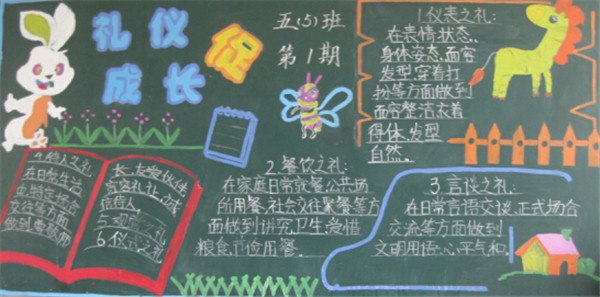 礼仪
促
成长
五(5)班
第1期
1.仪表之礼:
在表情状态、
身体姿态、面容
发型、穿着打
扮等方面做到
面容整洁、衣着
得体、发型
自然。
2.餐饮之礼:
在家庭日常就餐、公共场
所用餐、社会交往聚餐等方
面做到讲究卫生、爱惜
粮食、节俭用餐。
3.言谈之礼:
在日常言语交谈、正式场合
交流等方面做到
文明用语、心平气和。
4.待人之礼
在日常生活
公共等方面
做到尊敬师
长、友爱伙伴
宽容礼让、诚
信待人
5.观赏之礼
6.仪式之礼